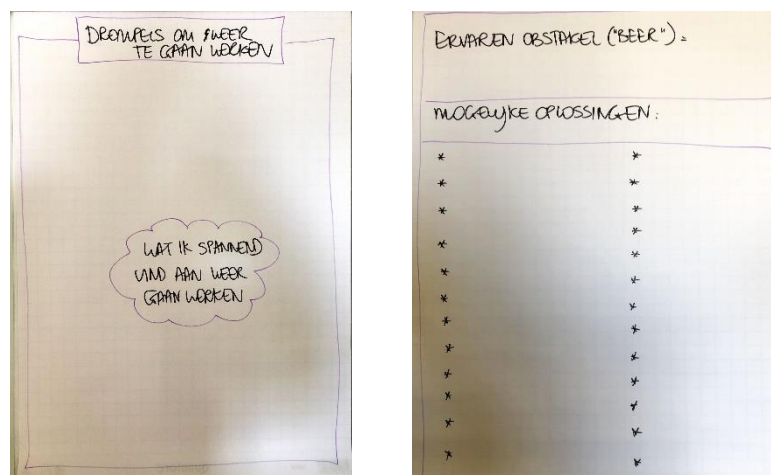 DREMPELS OM WEER
TE GAAN WERKEN
WAT IK SPANNEND
VIND AAN WEER
GAAN WERKEN
ERVAREN OBSTAKEL ("BEER"):
MOGELIJKE OPLOSSINGEN: